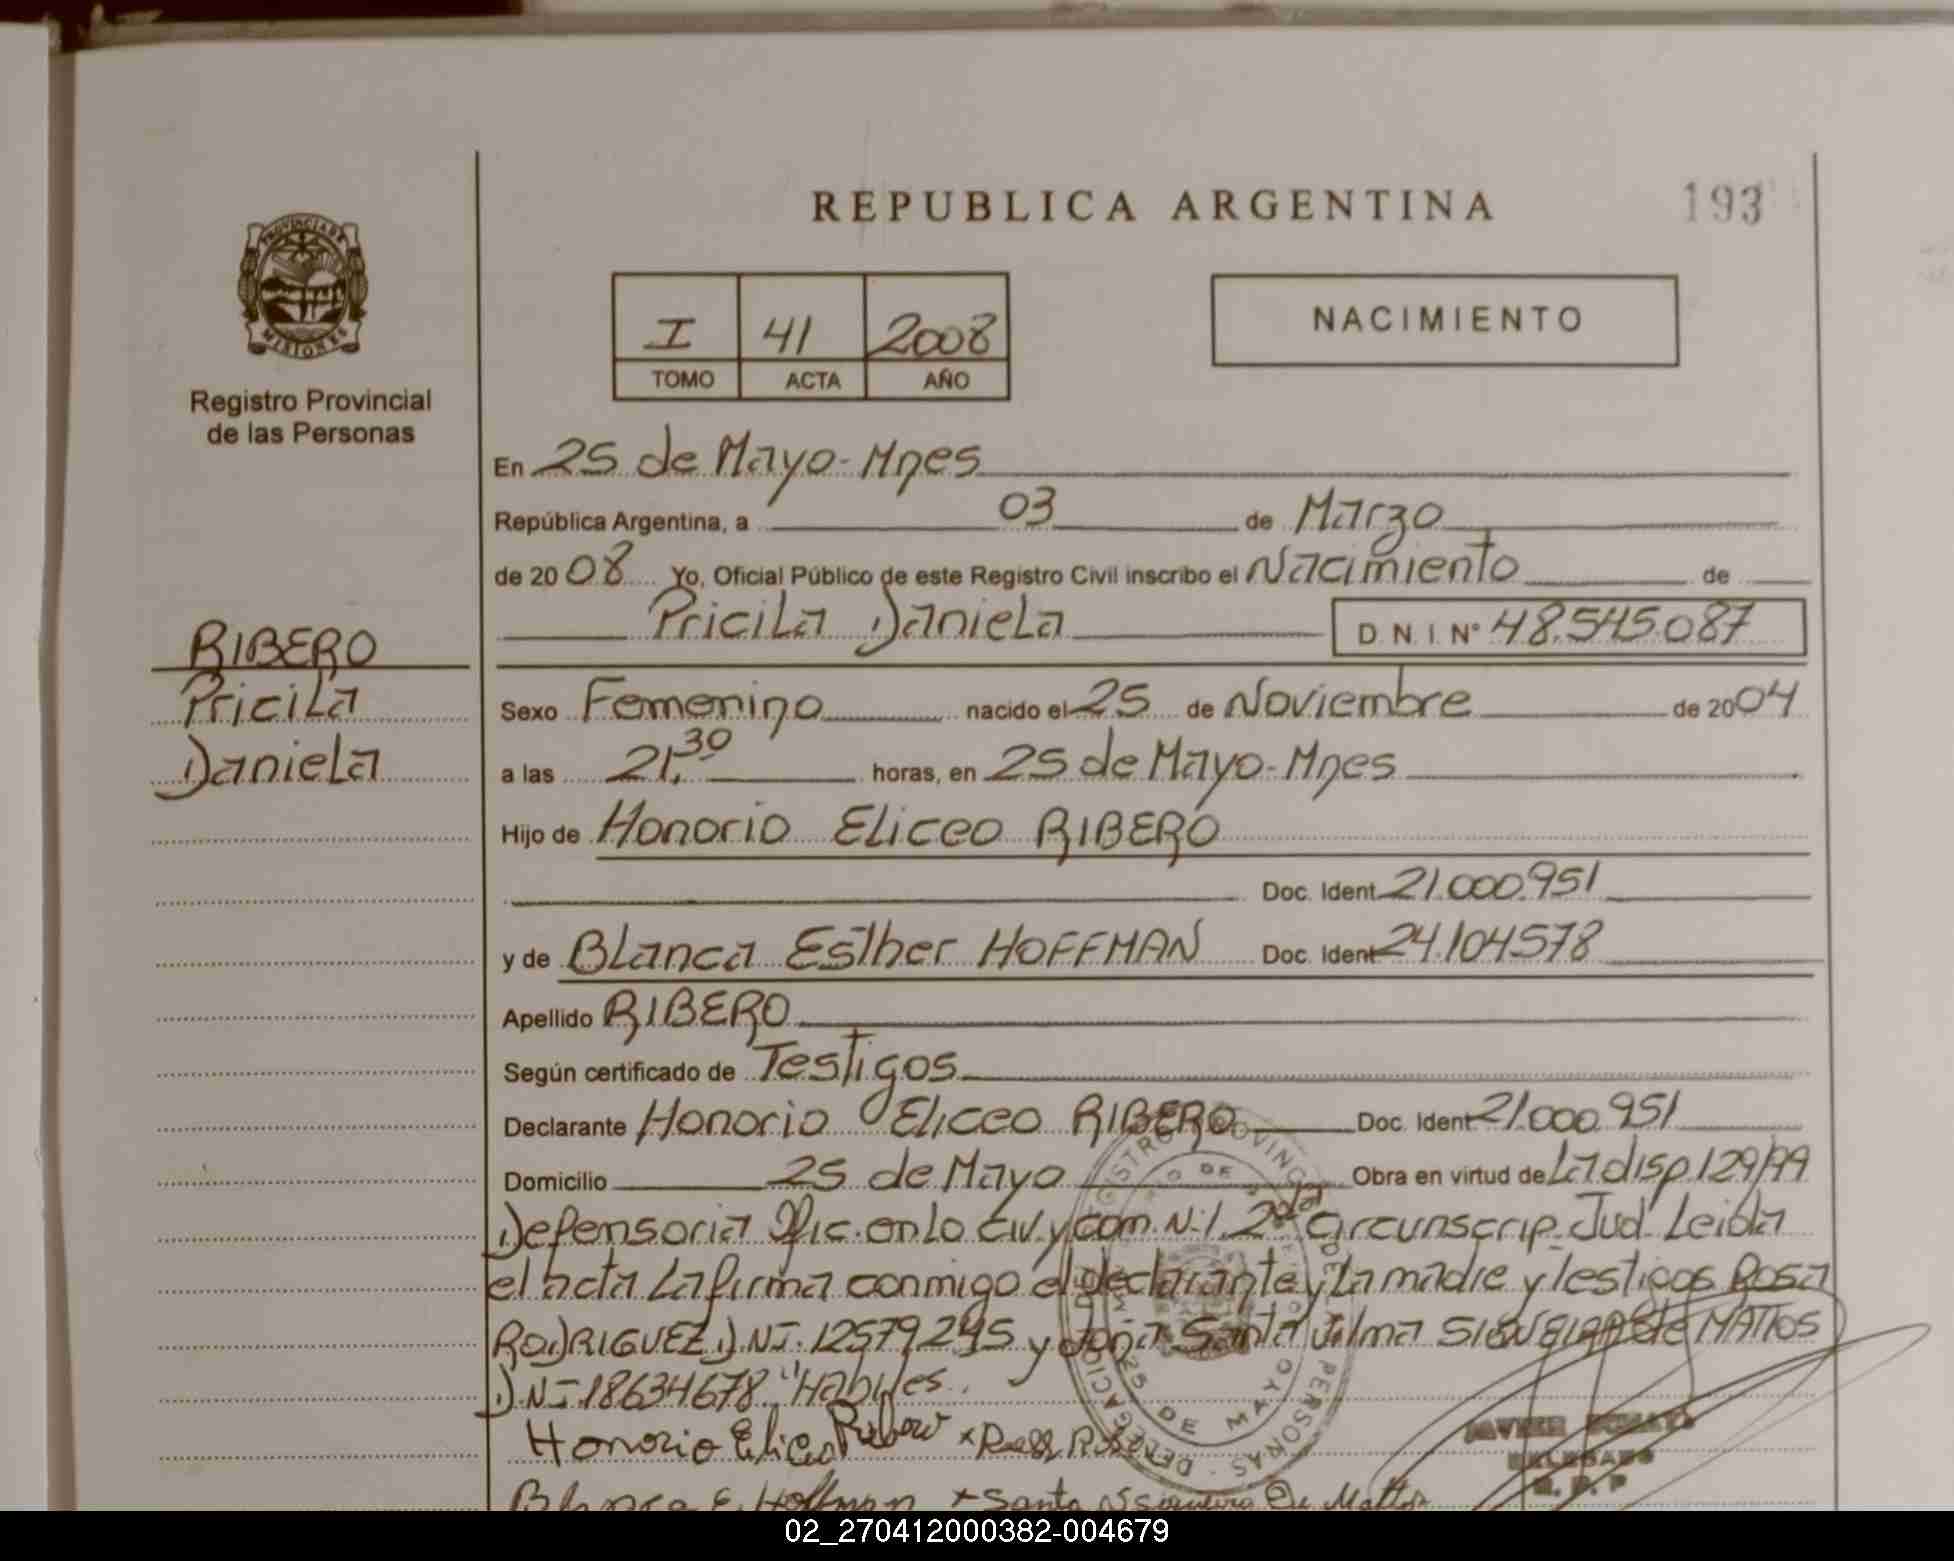 REPUBLICA ARGENTINA
193
PROVINCIA DE
MISIONES
Registro Provincial
de las Personas
I 41 2008
TOMO ACTA AÑO
NACIMIENTO
En 25 de Mayo-Mnes
República Argentina, a 03 de Marzo
de 20 08 Yo, Oficial Público de este Registro Civil inscribo el Nacimiento de
Pricila Daniela D.N.I. N° 48.545.087
RIBERO
Pricila
Daniela
Sexo Femenino nacido el 25 de Noviembre de 2004
a las 21,30 horas, en 25 de Mayo-Mnes
Hijo de Honorio Eliceo RIBERO
Doc. Ident 21.000.951
y de Blanca Esther HOFFMAN Doc. Ident 24.104578
Apellido RIBERO
Según certificado de Testigos
Declarante Honorio Eliceo RIBERO Doc. Ident 21.000.951
Domicilio 25 de Mayo Obra en virtud de La disp. 129/99
Defensoria Ofic. en Lo Civ. y com. N: 1. 2da Circunscrip. Jud Leida
el acta La firma conmigo el declarante y La madre y testigos Rosa
RODRIGUEZ D.NI. 12579245 y doña Santa Jilma de MATTOS
D.NI 18634678 "Habiles.
Honorio Eliceo Ribero
DELEGACION 25 DE MAYO
JAVIER
DELEGADO
R. P. P
Blanca E. Hoffman x Santa De Mattos
02_270412000382-004679